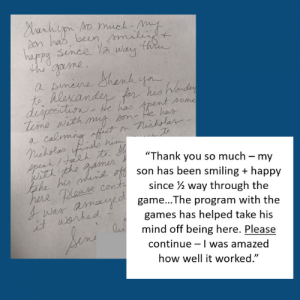 Thank you so much - my
son has been smiling +
happy since ½ way thru
the game.
a sincere Thank you
to Alexander for his
disposition - He has spent some
time with my son - He has
a calming effect on Nicholas -
Nicholas
with the games
take his mind off
here. Please
I was amazed
it worked -
"Thank you so much – my
son has been smiling + happy
since ½ way through the
game...The program with the
games has helped take his
mind off being here. Please
continue – I was amazed
how well it worked."